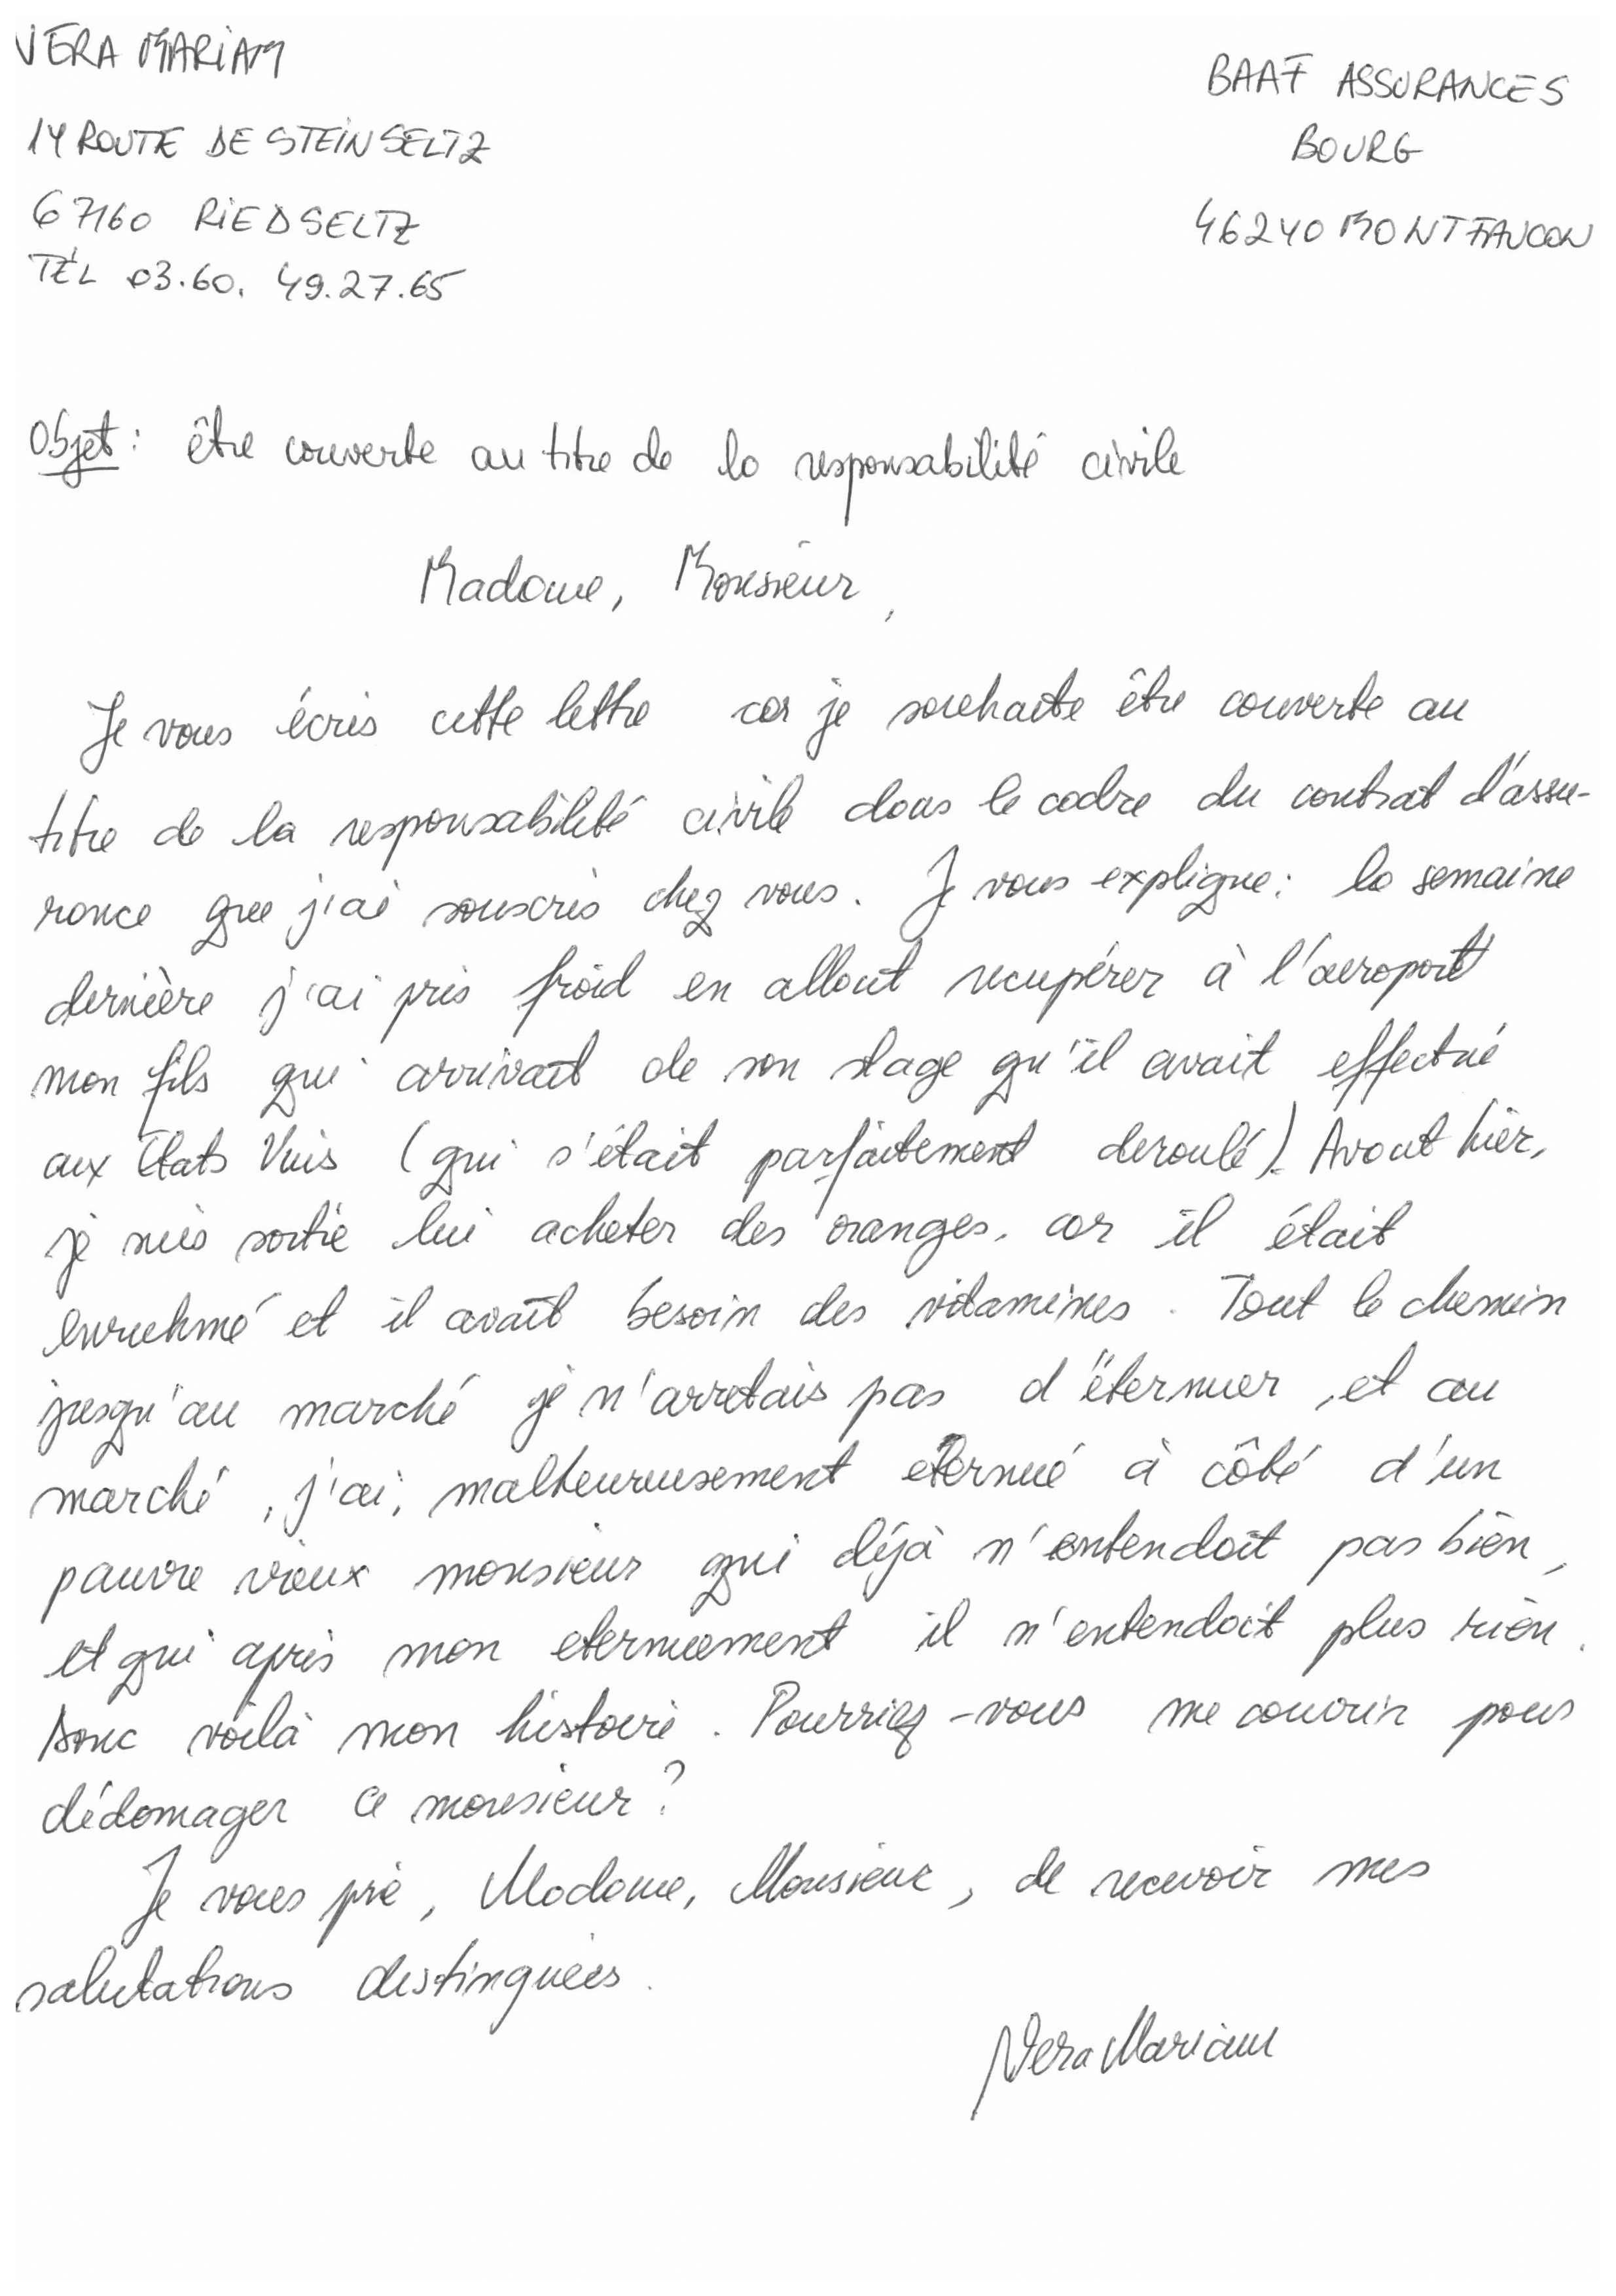 VERA MARIAM
14 ROUTE DE STEINSELTZ
67160 RIEDSELTZ
TÉL 03.60. 49.27.65
BAAF ASSURANCES
BOURG
46240 MONTFAUCON
Objet : être couverte au titre de la responsabilité civile
Madame, Monsieur,
Je vous écris cette lettre car je souhaite être couverte au
titre de la responsabilité civile dans le cadre du contrat d'assu-
rance que j'ai souscris chez vous. Je vous explique : la semaine
dernière j'ai pris froid en allant recupérer à l'aeroport
mon fils qui arrivait de son stage qu'il avait effectué
aux Etats Unis (qui s'était parfaitement deroulé). Avant hier,
je suis sortie lui acheter des oranges, car il était
enruhmé et il avait besoin des vitamines. Tout le chemin
jusqu'au marché je n'arretais pas d'éternuer, et au
marché, j'ai, malheureusement eternué à côté d'un
pauvre vieux monsieur qui déjà n'entendait pas bien,
et qui après mon eternuement il n'entendait plus rien.
Donc voilà mon histoire. Pourriez-vous me couvrir pour
dédomager ce monsieur ?
Je vous prie, Madame, Monsieur, de recevoir mes
salutations distinguées.
Vera Mariam